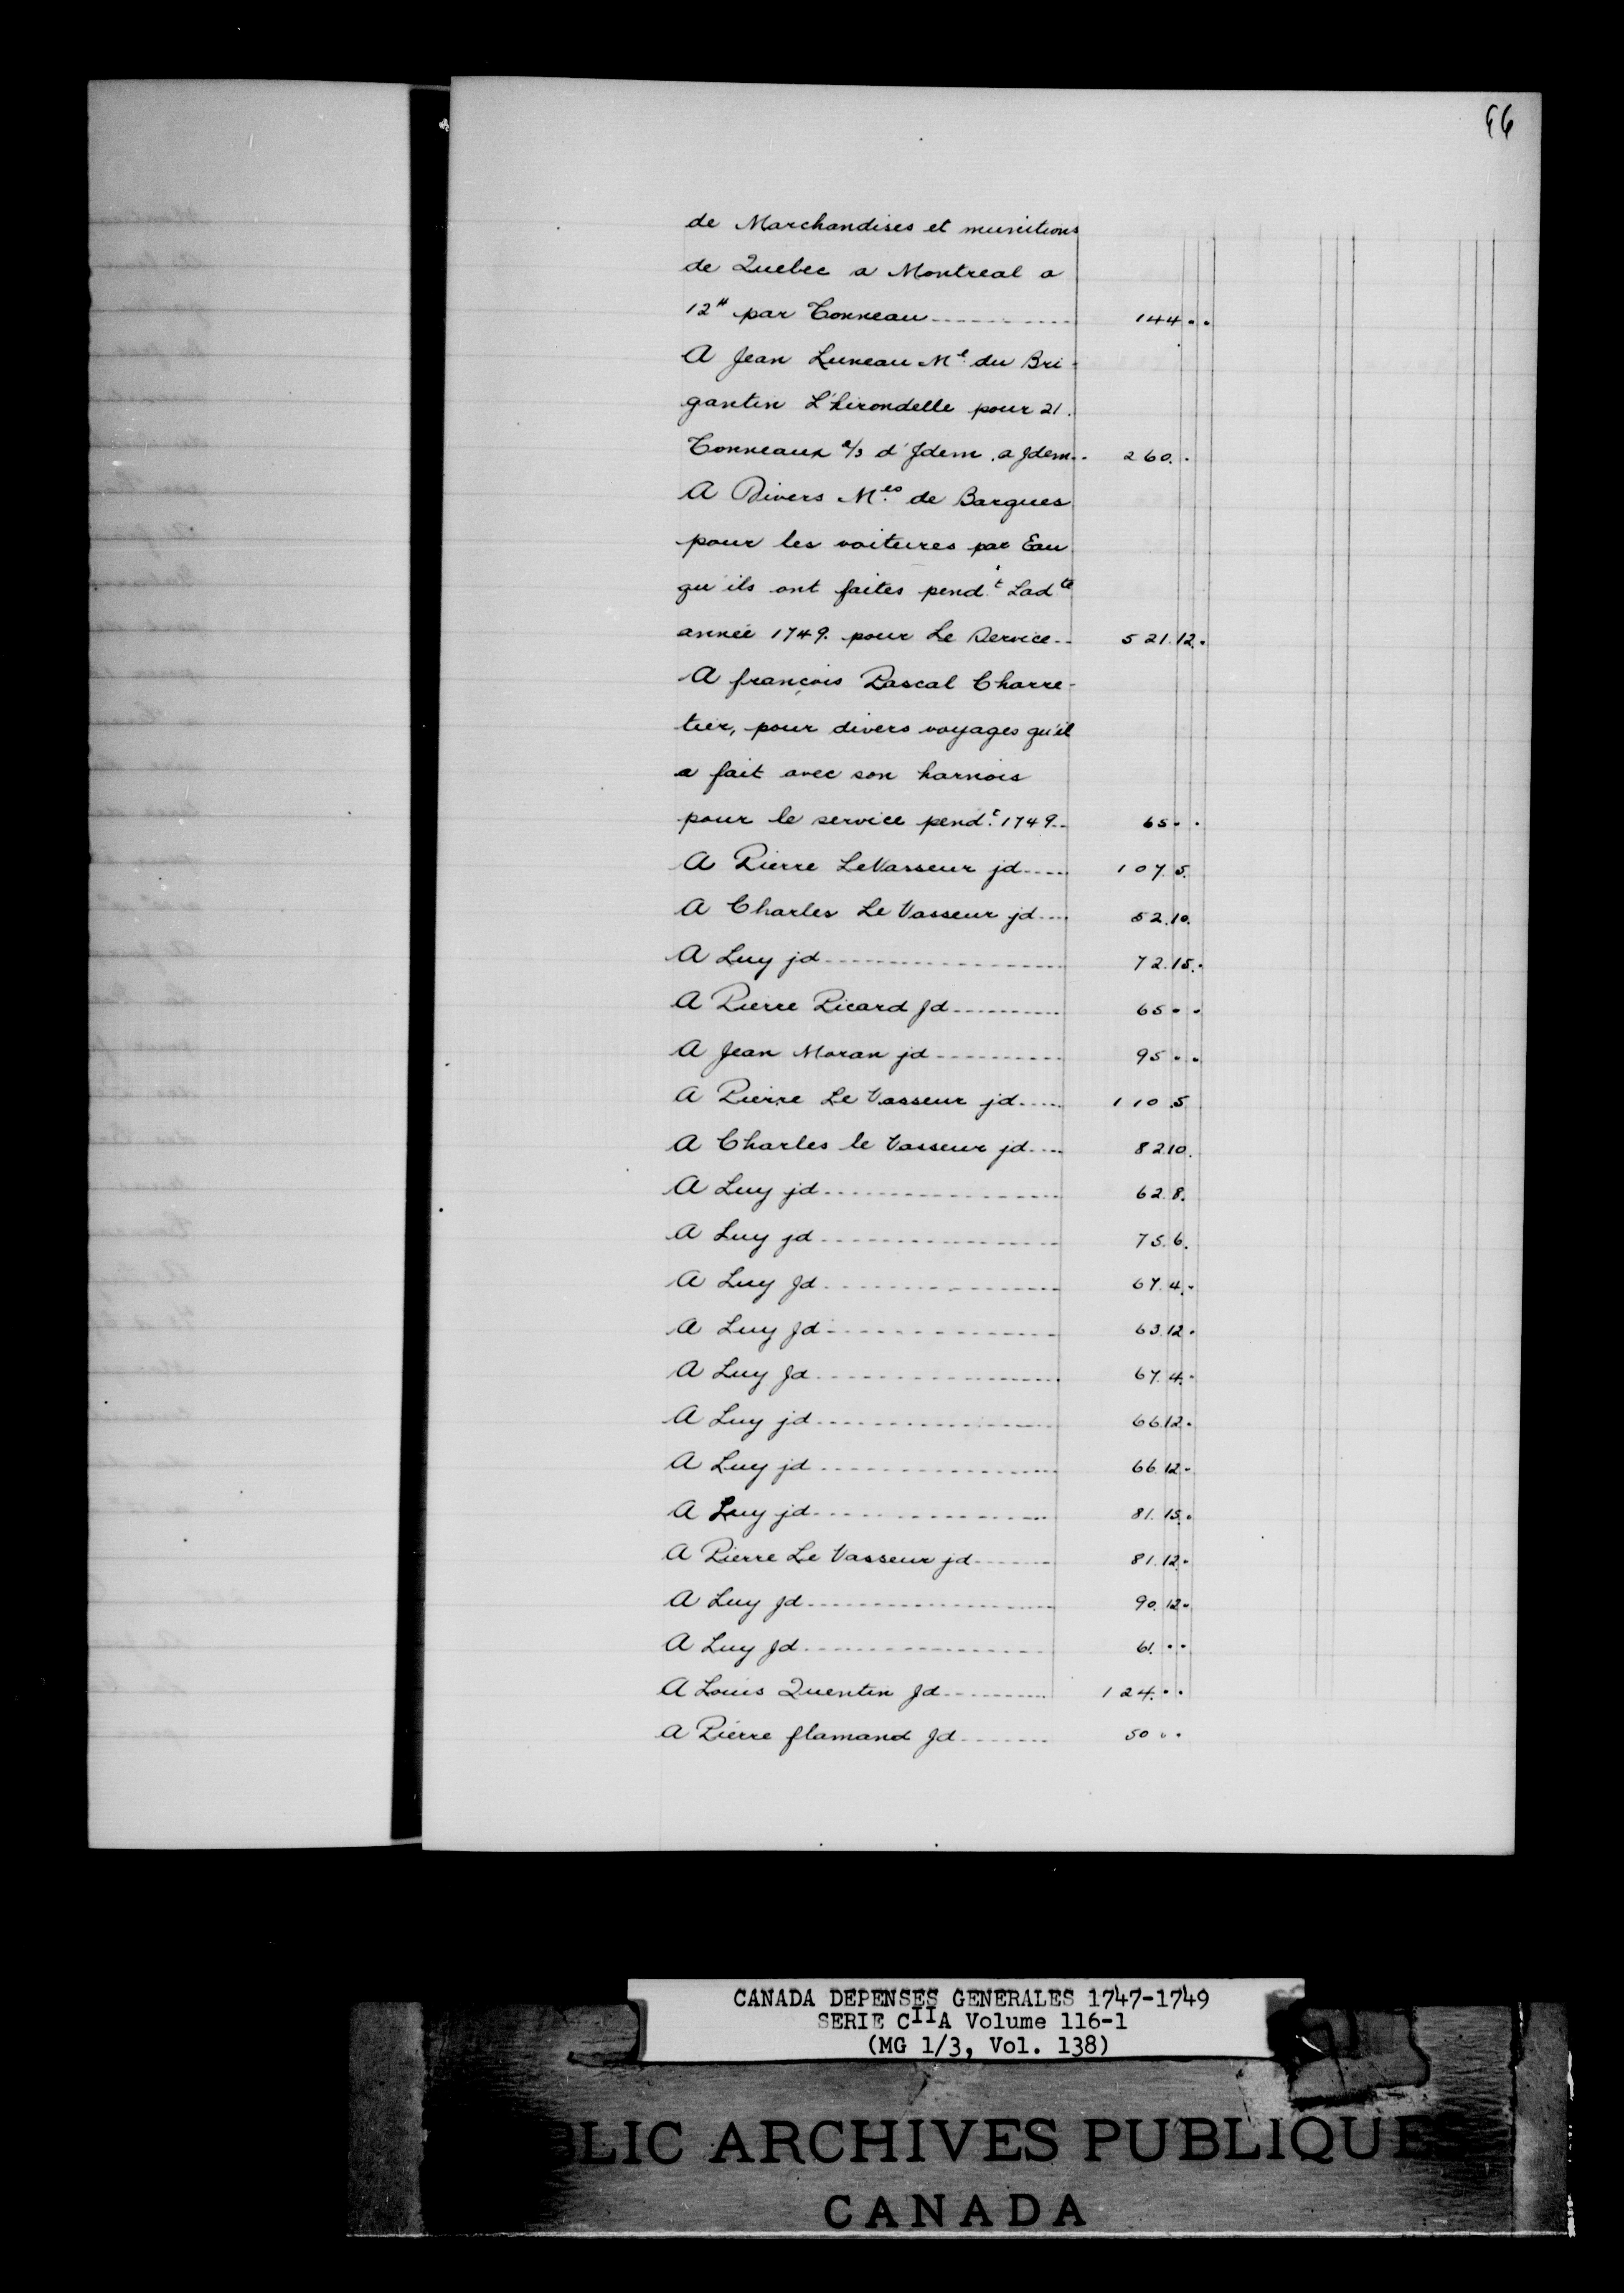 66
de Marchandises et munitions
de Quebec a Montreal a
12ᴴ par Tonneau 144..
A Jean Luneau Mᵉ du Bri-
gantin L'hirondelle pour 21.
Tonneaux 2/3 d'Jdem a Jdem 260..
A Divers Mᵉˢ de Barques
pour les voitures par Eau
qu'ils ont faites pendᵗ Ladᵗᵉ
année 1749. pour Le Service 521.12.
A françois Pascal Charre-
tier, pour divers voyages qu'il
a fait avec son harnois
pour le service pendᵗ 1749 65..
A Pierre LeVasseur jd 107.5.
A Charles Le Vasseur jd 52.10.
A Luy jd 72.15.
A Pierre Picard Jd 65..
A Jean Moran jd 95..
A Pierre Le Vasseur jd 110.5
A Charles le Vasseur jd 82.10.
A Luy jd 62.8.
A Luy jd 75.6.
A Luy Jd 67.4.
A Luy Jd 63.12.
A Luy Jd 67.4.
A Luy jd 66.12.
A Luy jd 66.12.
A Luy jd 81.15.
A Pierre Le Vasseur jd 81.12.
A Luy Jd 90.12.
A Luy Jd 61...
A Louis Quentin Jd 124...
A Pierre flamand Jd 50..
CANADA DEPENSES GENERALES 1747-1749
SERIE CIIA Volume 116-1
(MG 1/3, Vol. 138)
BLIC ARCHIVES PUBLIQUE
CANADA